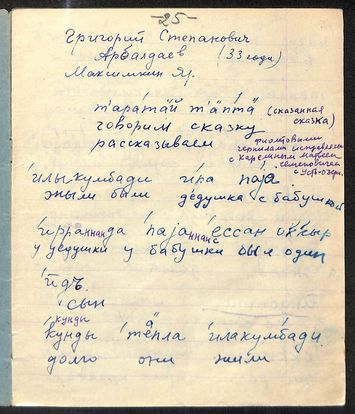 -25-
Григорий Степанович
Арбалдаев (33 года)
Максимкин Яр.
т'арата́й т'ӓптӓ (сказанная
сказка)
говорим сказку
рассказываем
фиолетовыми
чернилами исправлено
с Карелиным Матвеем
Семеновичем
с Усть-Озерн.
илыкумбади ира паjа
жили были дедушка с бабушкой
ирраннанда паjаннанс ессан оккыр
у дедушки у бабушки был один
йдъ.
сын
кунды
кунды тепла илакумбади
долго они жили